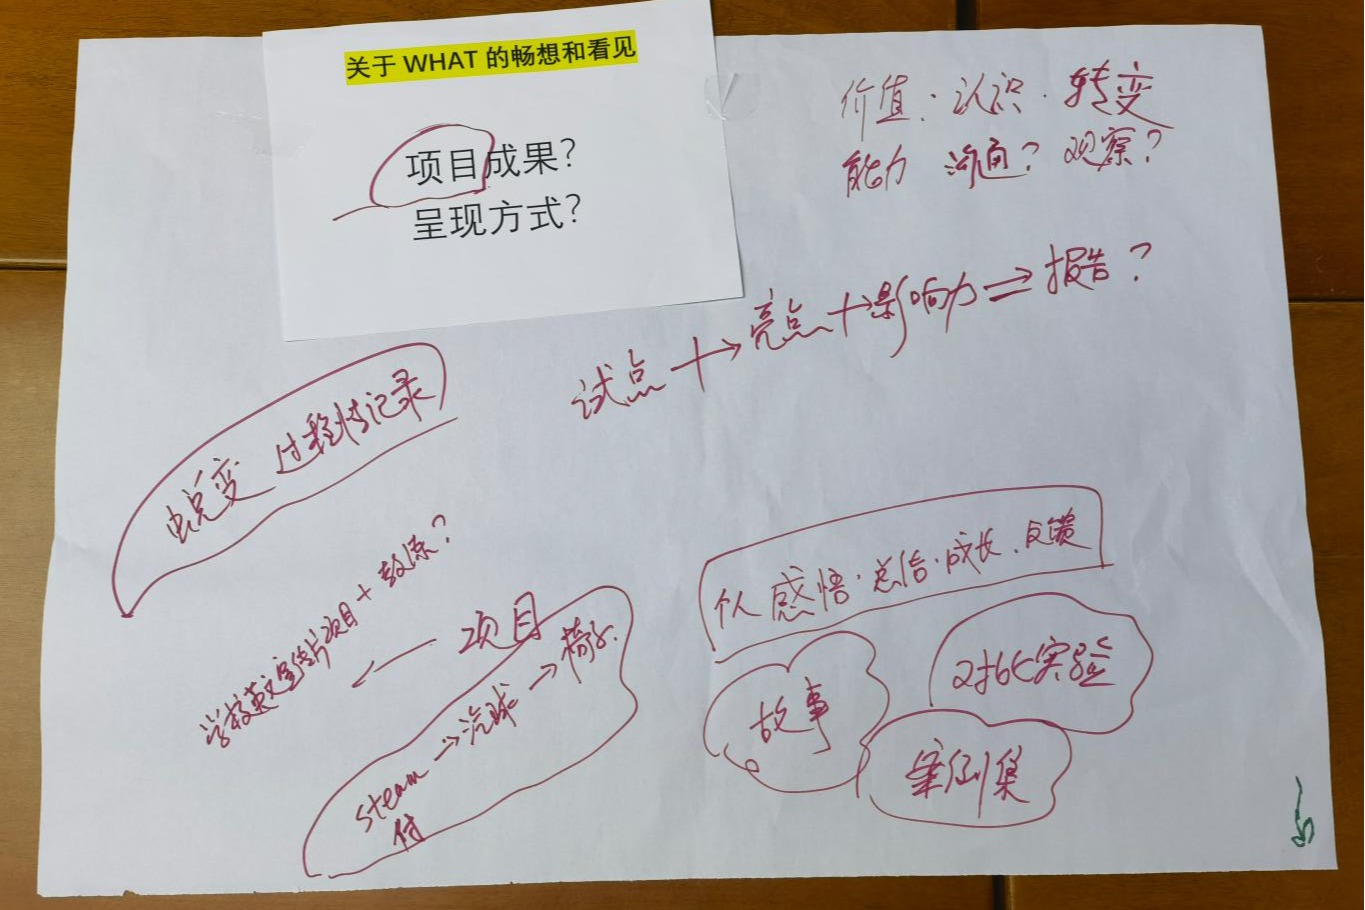 关于 WHAT 的畅想和看见
项目成果?
呈现方式?
价值·认识·转变
能力 沟通? 观察?
试点+→亮点+→影响力⇒报告?
蜕变 过程性记录
学校英文宣传片项目+教练?
←项目
steam→汽球→椅子.
付
个人感悟·总结·成长、反馈
故事
对比实验
案例集